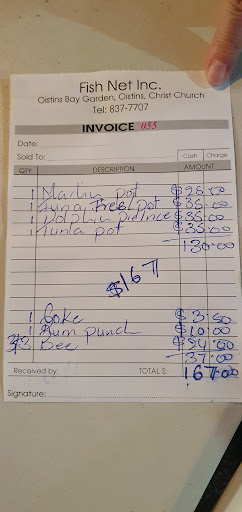 Fish Net Inc.
Oistins Bay Garden, Oistins, Christ Church
Tel: 837-7707
INVOICE 455
Date:
Sold To: Cash Charge
QTY DESCRIPTION AMOUNT
1 Marlin pot $25.00
1 Tuna Fres pot $35.00
1 Dolphin $35.00
1 Tunta pot $35.00
130.00
$167
1 Coke $3.50
1 Rum punch $10.00
Bee $24.00
37.00
Received by: TOTAL $: 167.00
Signature: